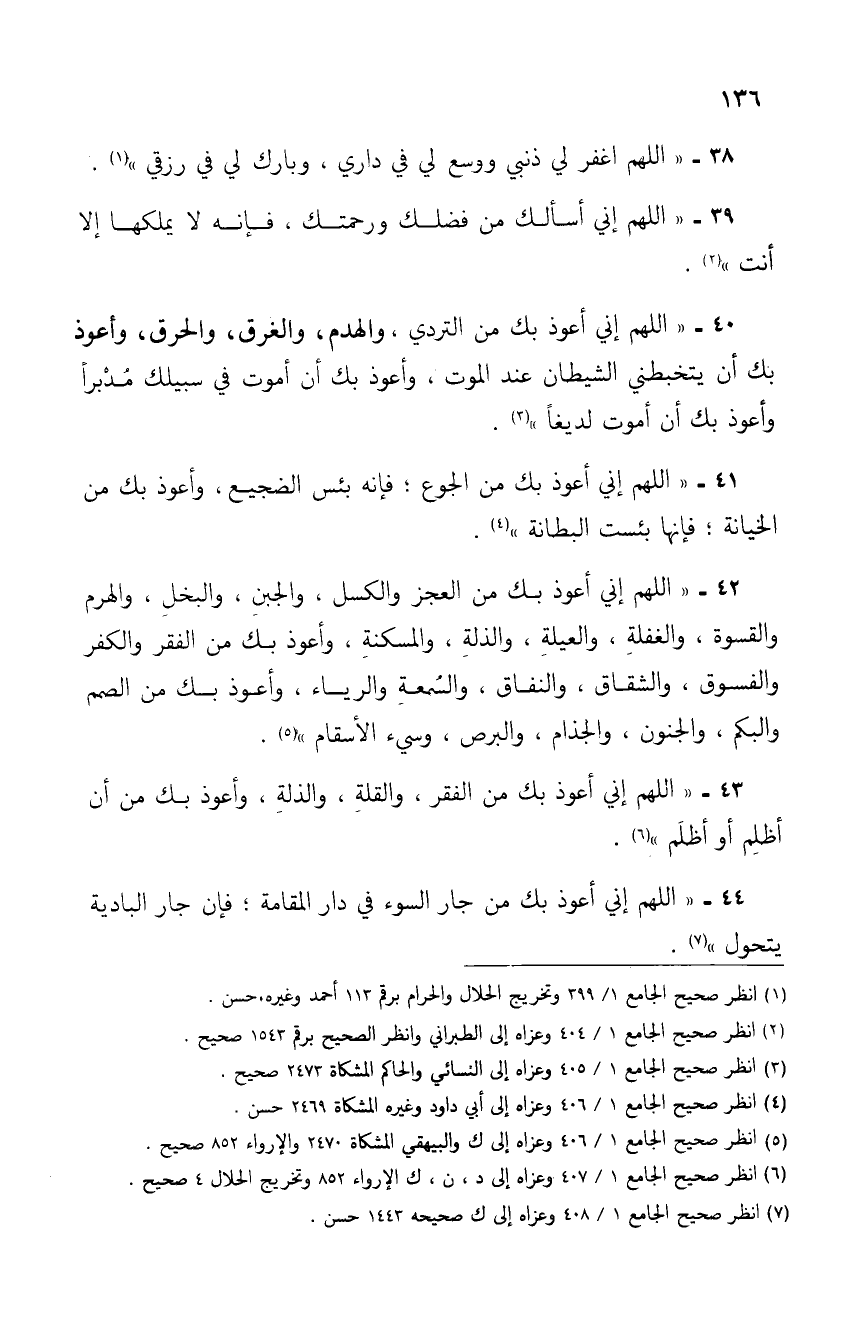 ١٣٦
٣٨ - « اللهم اغفر لي ذنبي ووسع لي في داري ، وبارك لي في رزقي »(١) .
٣٩ - « اللهم إني أسألك من فضلك ورحمتك ، فإنه لا يملكها إلا
أنت »(٢) .
٤٠ - « اللهم إني أعوذ بك من التردي ، والهدم، والغرق، والحرق، وأعوذ
بك أن يتخبطني الشيطان عند الموت ، وأعوذ بك أن أموت في سبيلك مُدْبراً
وأعوذ بك أن أموت لديغاً »(٣) .
٤١ - « اللهم إني أعوذ بك من الجوع ؛ فإنه بئس الضجيع ، وأعوذ بك من
الخيانة ؛ فإنها بئست البطانة »(٤) .
٤٢ - « اللهم إني أعوذ بك من العجز والكسل ، والجبنِ ، والبخلِ ، والهرم
والقسوة ، والغفلةِ ، والعيلةِ ، والذلةِ ، والمسكنةِ ، وأعوذ بك من الفقر والكفر
والفسوق ، والشقاق ، والنفاق ، والسُمعةِ والرياء ، وأعوذ بك من الصمم
والبكم ، والجنون ، والجذام ، والبرص ، وسيء الأسقام »(٥) .
٤٣ - « اللهم إني أعوذ بك من الفقر ، والقلةِ ، والذلةِ ، وأعوذ بك من أن
أظلِم أو أظلَم »(٦) .
٤٤ - « اللهم إني أعوذ بك من جار السوء في دار المقامة ؛ فإن جار البادية
يتحول »(٧) .
(١) انظر صحيح الجامع ١/ ٣٩٩ وتخريج الحلال والحرام برقم ١١٣ أحمد وغيره،حسن .
(٢) انظر صحيح الجامع ١ / ٤٠٤ وعزاه إلى الطبراني وانظر الصحيح برقم ١٥٤٣ صحيح .
(٣) انظر صحيح الجامع ١ / ٤٠٥ وعزاه إلى النسائي والحاكم المشكاة ٢٤٧٣ صحيح .
(٤) انظر صحيح الجامع ١ / ٤٠٦ وعزاه إلى أبي داود وغيره المشكاة ٢٤٦٩ حسن .
(٥) انظر صحيح الجامع ١ / ٤٠٦ وعزاه إلى ك والبيهقي المشكاة ٢٤٧٠ والإرواء ٨٥٢ صحيح .
(٦) انظر صحيح الجامع ١ / ٤٠٧ وعزاه إلى د ، ن ، ك الإرواء ٨٥٢ وتخريج الحلال ٤ صحيح .
(٧) انظر صحيح الجامع ١ / ٤٠٨ وعزاه إلى ك صحيحه ١٤٤٣ حسن .